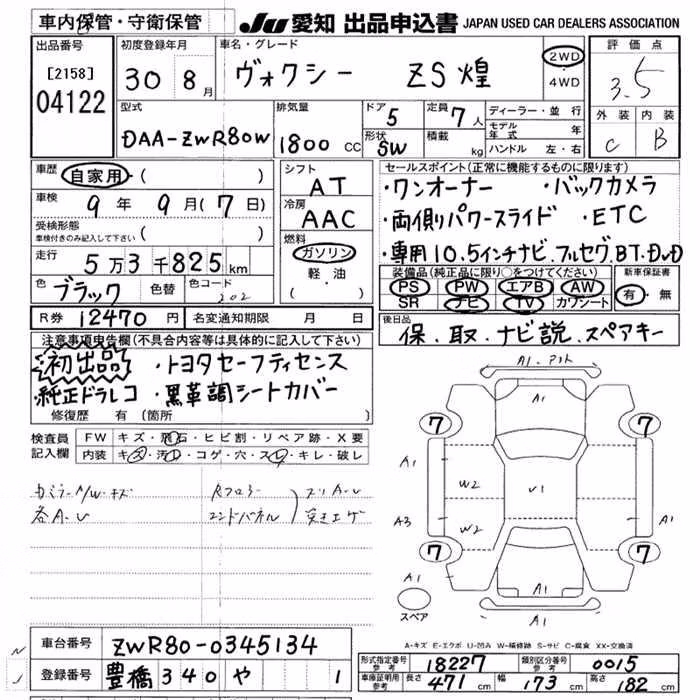 車内保管・守衛保管
JU 愛知 出品申込書 JAPAN USED CAR DEALERS ASSOCIATION
出品番号
[2158]
04122
初度登録年月
30 8月
車名・グレード
ヴォクシー ZS煌
2WD
・
4WD
評価点
3.5
外装 内装
C B
型式
DAA-ZWR80W
排気量
1800 CC
ドア 5
形状 SW
定員 7人
積載 kg
ディーラー・並行
モデル年式 年
ハンドル 左・右
車歴
自家用・( )
車検
9年 9月(7日)
受検形態
車検付きのみ記入して下さい ( )
走行
5万3千825km
色 ブラック 色替 色コード 202
シフト
AT
冷房
AAC
燃料
ガソリン
軽・油
セールスポイント(正常に機能するものに限ります)
・ワンオーナー ・バックカメラ
・両側パワースライド ・ETC
・専用10.5インチナビ、フルセグ,BT・DVD
装備品(純正品に限り○をつけてください)
PS PW エアB AW
SR ナビ TV カワシート
新車保証書
有・無
R券 12470円 名変通知期限 月 日
後日品
保、取、ナビ説、スペアキー
注意事項申告欄(不具合内容等は具体的に記入して下さい)
初出品 ・トヨタセーフティセンス
・純正ドラレコ ・黒革調シートカバー
修復歴 有(箇所
検査員
記入欄
FW キズ・飛石・ヒビ割・リペア跡・X要
内装 キズ・汚れ・コゲ・穴・スレ・キレ・破レ
各A・U
A1
A1
7 7
A1
W2
U1
W2
A3
A1
7 7
A1
スペア
A1
A1
A-キズ E-エクボ U-凹み W-補修跡 S-サビ C-腐食 XX-交換済
車台番号 ZWR80-0345134
登録番号 豊橋 340 や 1
型式指定番号 参考 18227 類別区分番号 参考 0015
車庫証明用 参考 長さ 471cm 幅 173cm 高さ 182cm